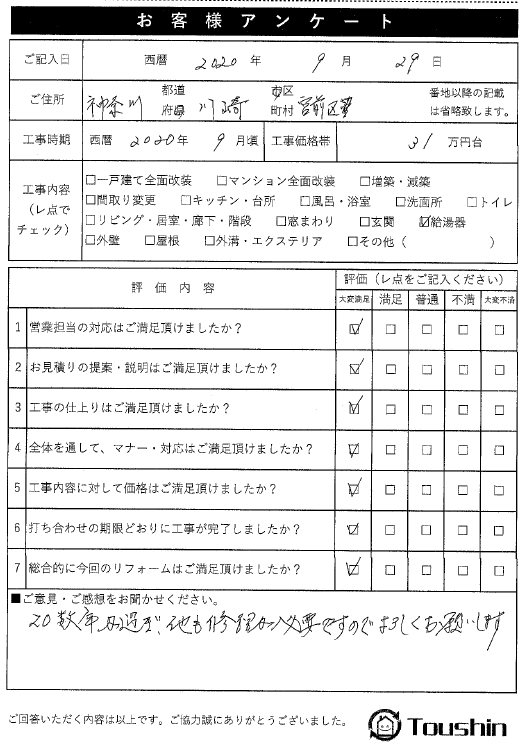 お客様アンケート
ご記入日 西暦 2020 年 9 月 29 日
ご住所 神奈川 都道府県 川崎 市区町村 宮前区 番地以降の記載は省略致します。
工事時期 西暦 2020年 9月頃 工事価格帯 31 万円台
工事内容(レ点でチェック)
□一戸建て全面改装 □マンション全面改装 □増築・減築
□間取り変更 □キッチン・台所 □風呂・浴室 □洗面所 □トイレ
□リビング・居室・廊下・階段 □窓まわり □玄関 ☑給湯器
□外壁 □屋根 □外溝・エクステリア □その他( )
評価内容 評価(レ点をご記入ください)
大変満足 満足 普通 不満 大変不満
1 営業担当の対応はご満足頂けましたか? ☑ □ □ □ □
2 お見積りの提案・説明はご満足頂けましたか? ☑ □ □ □ □
3 工事の仕上りはご満足頂けましたか? ☑ □ □ □ □
4 全体を通して、マナー・対応はご満足頂けましたか? ☑ □ □ □ □
5 工事内容に対して価格はご満足頂けましたか? ☑ □ □ □ □
6 打ち合わせの期限どおりに工事が完了しましたか? ☑ □ □ □ □
7 総合的に今回のリフォームはご満足頂けましたか? ☑ □ □ □ □
■ご意見・ご感想をお聞かせください。
20数年も過ぎ、他も修理が必要ですのでよろしくお願いします
ご回答いただく内容は以上です。ご協力誠にありがとうございました。
Toushin